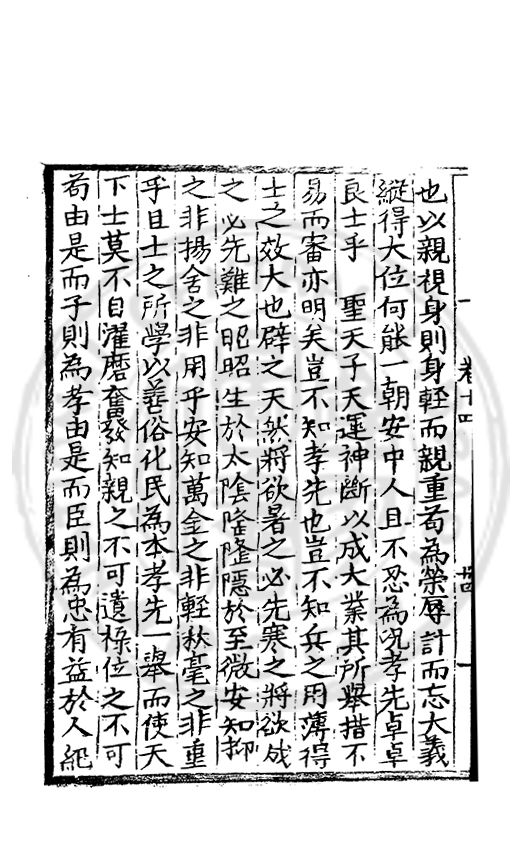 卷十四
十四
也以親視身則身輕而親重苟為榮辱計而忘大義
縱得大位何能一朝安中人且不忍為况孝先卓卓
良士乎　聖天子天運神斷以成大業其所舉措不
易而審亦明矣豈不知孝先也豈不知兵之用薄得
士之效大也辟之天然將欲暑之必先寒之將欲成
之必先難之昭昭生於太陰隆隆隱於至微安知抑
之非揚舍之非用乎安知萬金之非輕秋毫之非重
乎且士之所學以善俗化民為本孝先一舉而使天
下士莫不自濯磨奮發知親之不可遺祿位之不可
苟由是而子則為孝由是而臣則為忠有益於人紀